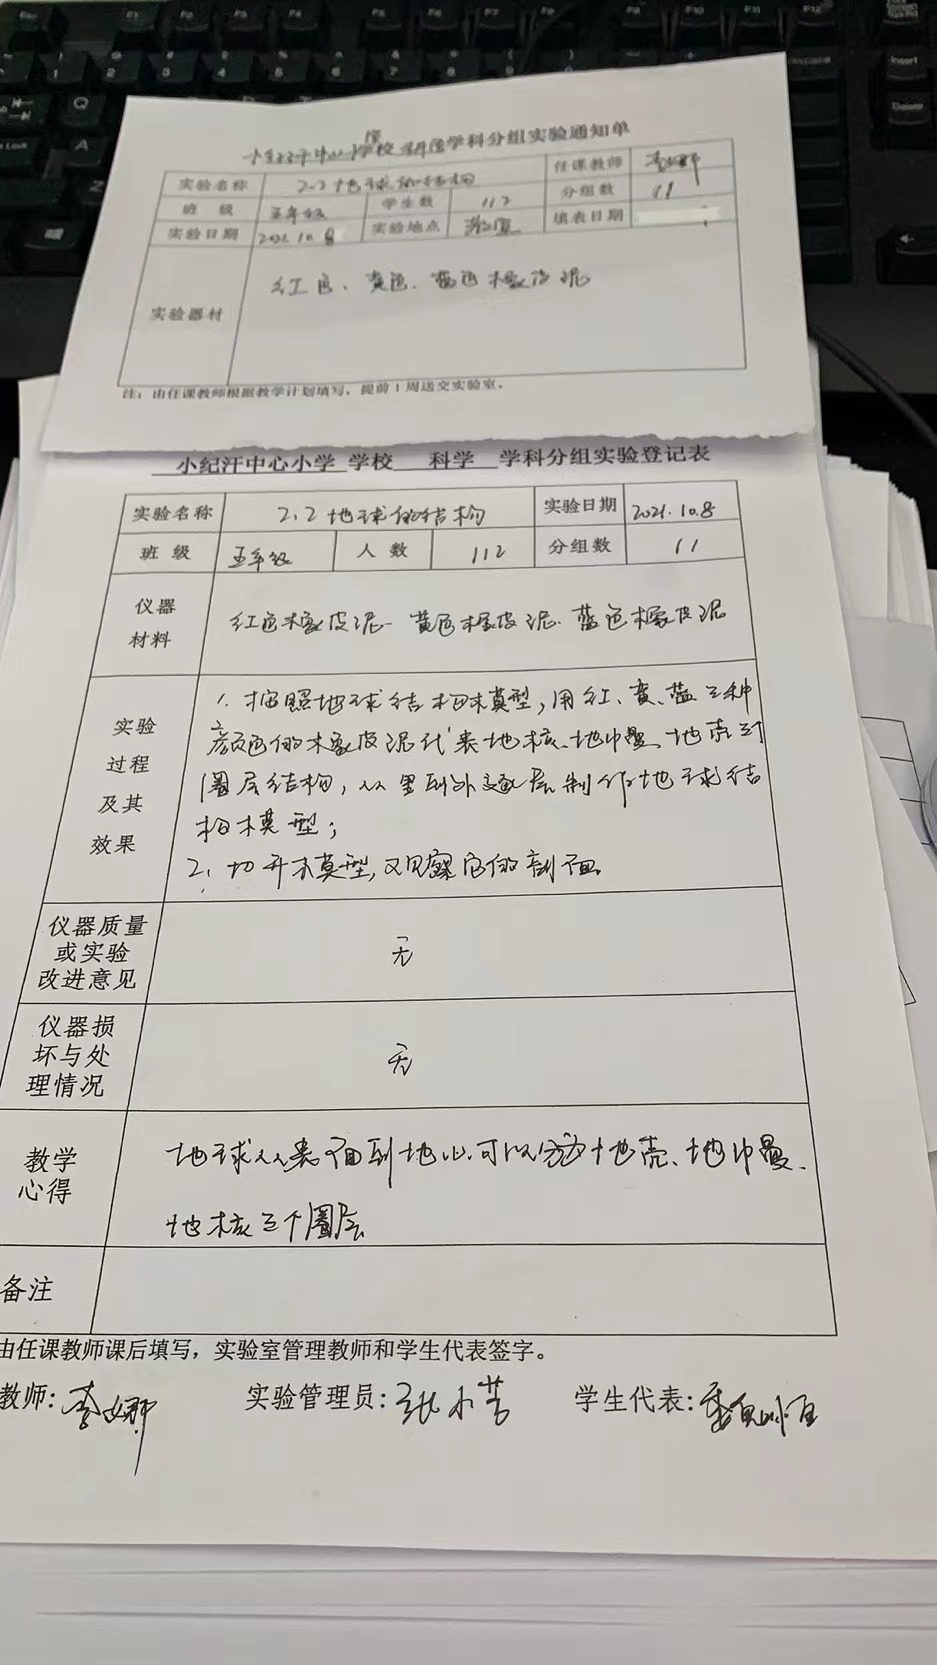 小纪汗中心小学校 科学学科分组实验通知单
实验名称 2.2 地球的结构 任课教师 李娜
班 级 五年级 学生数 112 分组数 11
实验日期 2021.10.8 实验地点 填表日期
实验器材 红色、黄色、蓝色橡皮泥
注：由任课教师根据教学计划填写，提前1周送交实验室。
小纪汗中心小学 学校 科学 学科分组实验登记表
实验名称 2.2 地球的结构 实验日期 2021.10.8
班 级 五年级 人 数 112 分组数 11
仪器
材料
红色橡皮泥、黄色橡皮泥、蓝色橡皮泥
实验
过程
及其
效果
1. 按照地球结构模型，用红、黄、蓝三种
颜色的橡皮泥代表地核、地幔、地壳的
圈层结构，从里到外逐层制作地球结
构模型；
2. 切开模型，观察它的剖面
仪器质量
或实验
改进意见
无
仪器损
坏与处
理情况
无
教学
心得
地球从表面到地心可以分为地壳、地幔、
地核三个圈层
备注
由任课教师课后填写，实验室管理教师和学生代表签字。
教师: 李娜 实验管理员: 张小芳 学生代表: